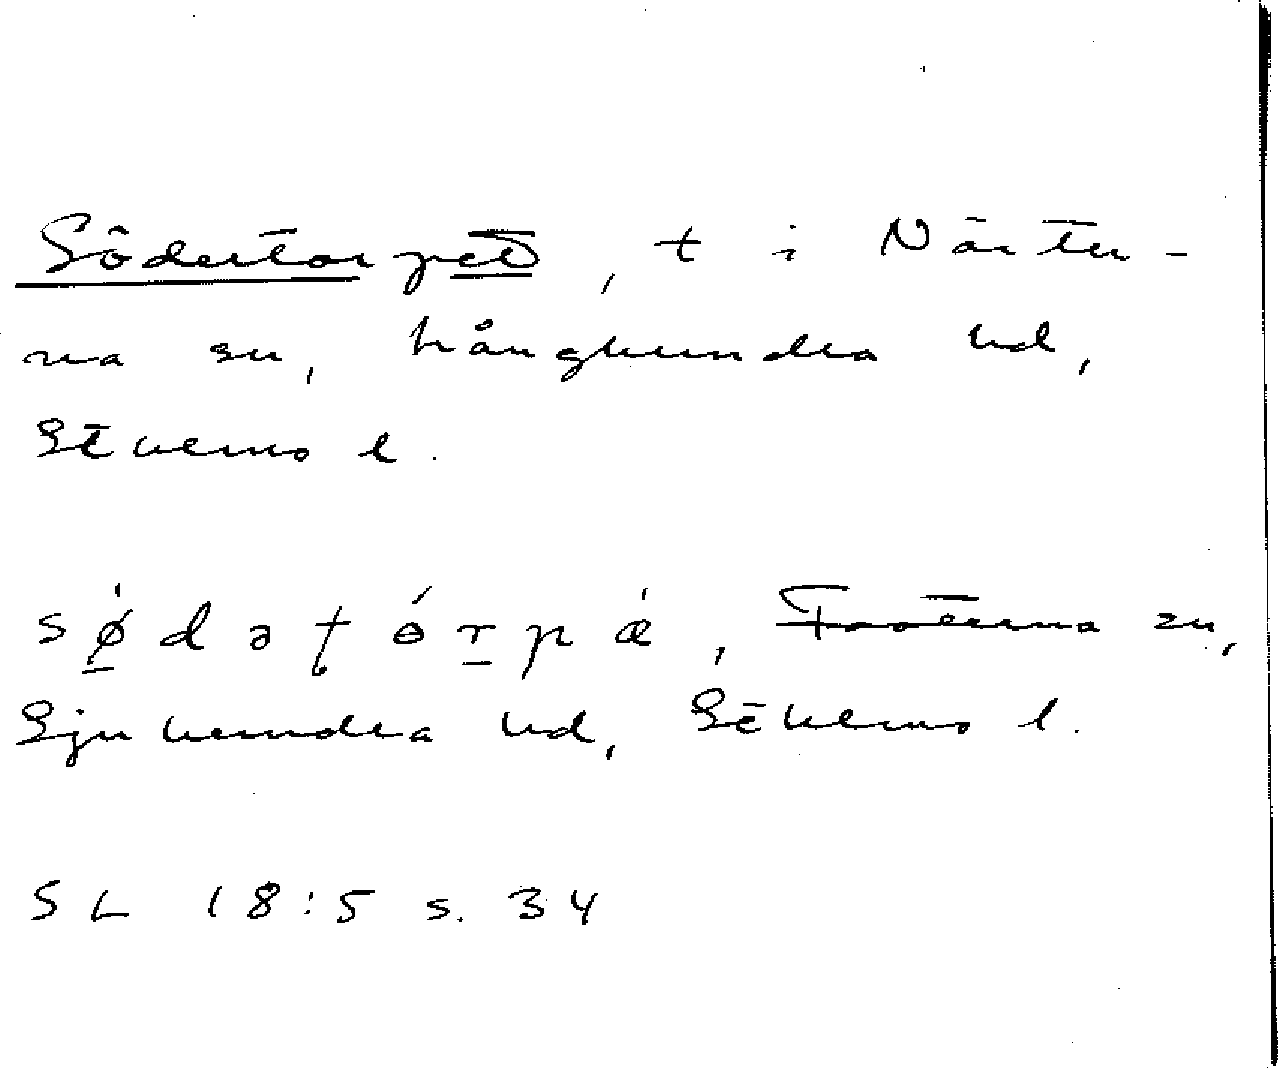 Södertorpet, t i Närtu-
na sn, Långhundra hd,
Sthms l.
sǿ̱dəţórpǽ, Frötuna sn,
Sjuhundra hd, Sthms l.
SL 18:5 s. 34